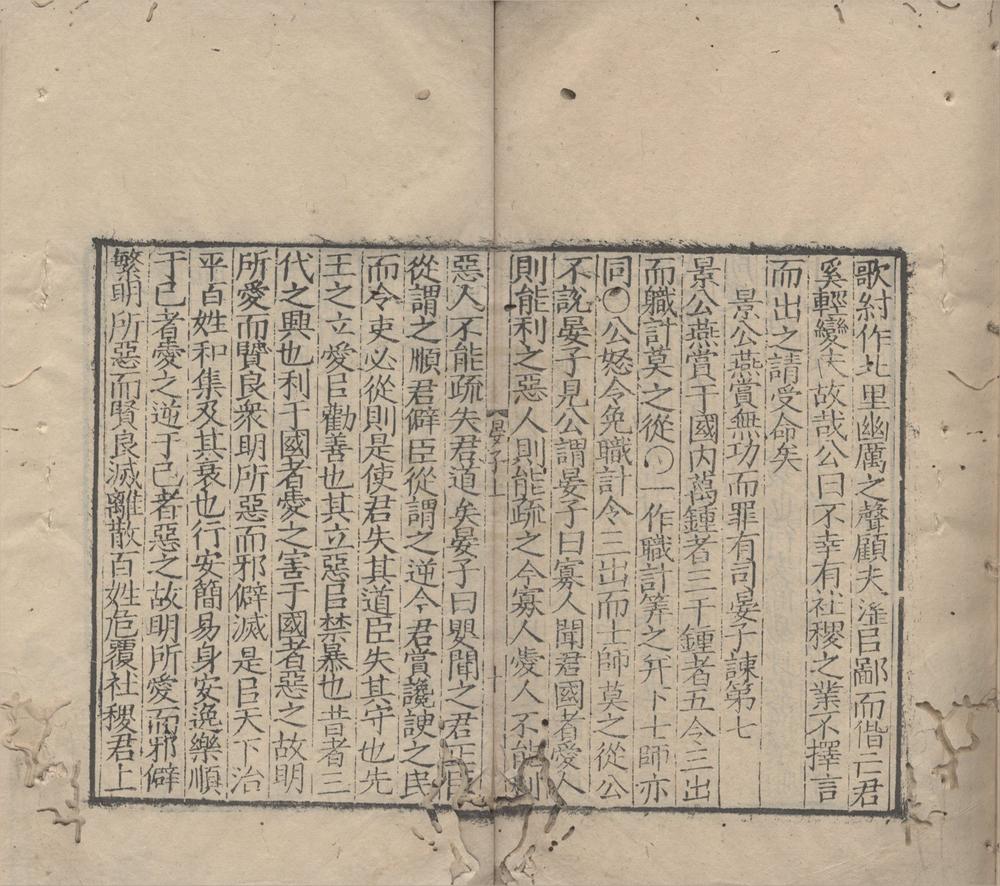 歌紂作北里幽厲之聲顧夫淫以鄙而偕亡君
奚輕變夫故哉公曰不幸有社稷之業不擇言
而出之請受命矣
景公燕賞無功而罪有司晏子諫第七
景公燕賞于國內萬鍾者三千鍾者五令三出
而職計莫之從〇一作職計筭之并下士師亦
同〇公怒令免職計令三出而士師莫之從公
不說晏子見公謂晏子曰寡人聞君國者愛人
則能利之惡人則能疏之今寡人愛人不能利
晏子上
十
惡人不能疏失君道矣晏子曰嬰聞之君正臣
從謂之順君僻臣從謂之逆今君賞讒諛之民
而令吏必從則是使君失其道臣失其守也先
王之立愛以勸善也其立惡以禁暴也昔者三
代之興也利于國者愛之害于國者惡之故明
所愛而賢良衆明所惡而邪僻滅是以天下治
平百姓和集及其衰也行安簡易身安逸樂順
于己者愛之逆于己者惡之故明所愛而邪僻
繁明所惡而賢良滅離散百姓危覆社稷君上